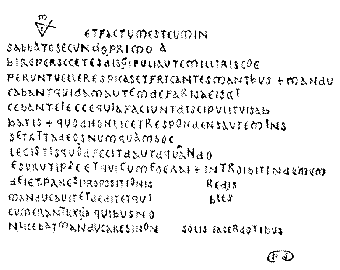 ETFACTUMESTEUMIN
SABBATOSECUNDOPRIMO A
BIREPERSCCETESDISGIPULIAUTEMILLIRISCOE
PERUNTVELLERESPICASETFRICANTESMANIBUS + MANDU
CABANTQUIDAMAUTEMDEFARISAEISDI
CEBANTEIECCEQUIAFACIUNTDISCIPULITUISAB
BATIS + QUODNONLICETRESPONDENSAUTEMINS
SETXTTADEOSNUMQUAMHOC
LECISTISQUODFECITDAUIDQUANDO
ESURUTIPSEETQUICUMEOERAT + INTROIBITINDOMUM
DEIETPANESPROPOSITIONIS REDIS
MANDUCAUITETDEDITETQUI BLES
CUMERANTUXIIOQUIBUSNO
NLICEBATMANDUCARESINON SOLIS SACERDOTIBUS
PS